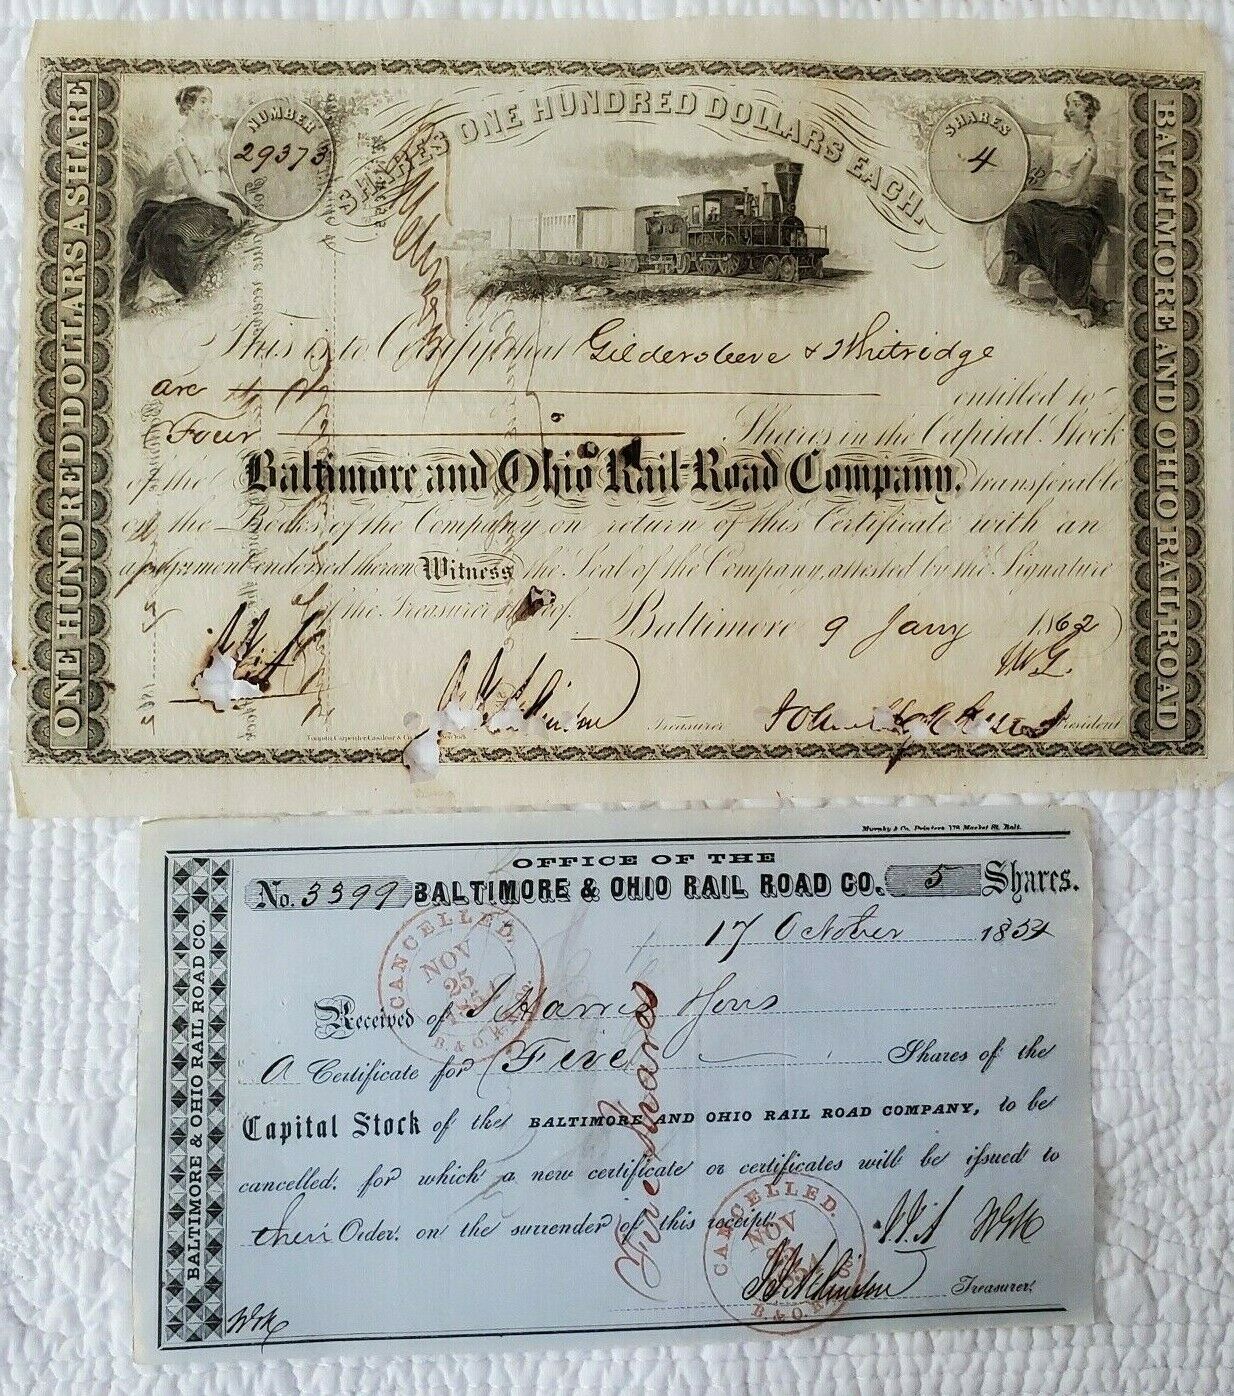 ONE HUNDRED DOLLARS A SHARE
NUMBER
29373
SHARES ONE HUNDRED DOLLARS EACH.
SHARES
4
BALTIMORE AND OHIO RAILROAD
This is to Certify that Gildersleeve & Whitridge
are entitled to
Four Shares in the Capital Stock
of the Baltimore and Ohio Rail-Road Company, transferable
on the Books of the Company on return of this Certificate with an
assignment endorsed thereon Witness the Seal of the Company, attested by the Signature
of the Treasurer thereof.
Baltimore 9 Jany 1862
W G.
Treasurer
President
Murphy & Co. Printers 178 Market St. Balt.
BALTIMORE & OHIO RAIL ROAD CO.
OFFICE OF THE
No. 3399 BALTIMORE & OHIO RAIL ROAD CO. 5 Shares.
17 October 1854
CANCELLED.
NOV
25
1854
B. & O. R.
Received of Harris Sons
A Certificate for Five Shares of the
Capital Stock of the BALTIMORE AND OHIO RAIL ROAD COMPANY, to be
cancelled. for which a new certificate or certificates will be issued to
their Order. on the surrender of this receipt.
Five Shares
CANCELLED.
NOV
B. & O. R.
Treasurer.